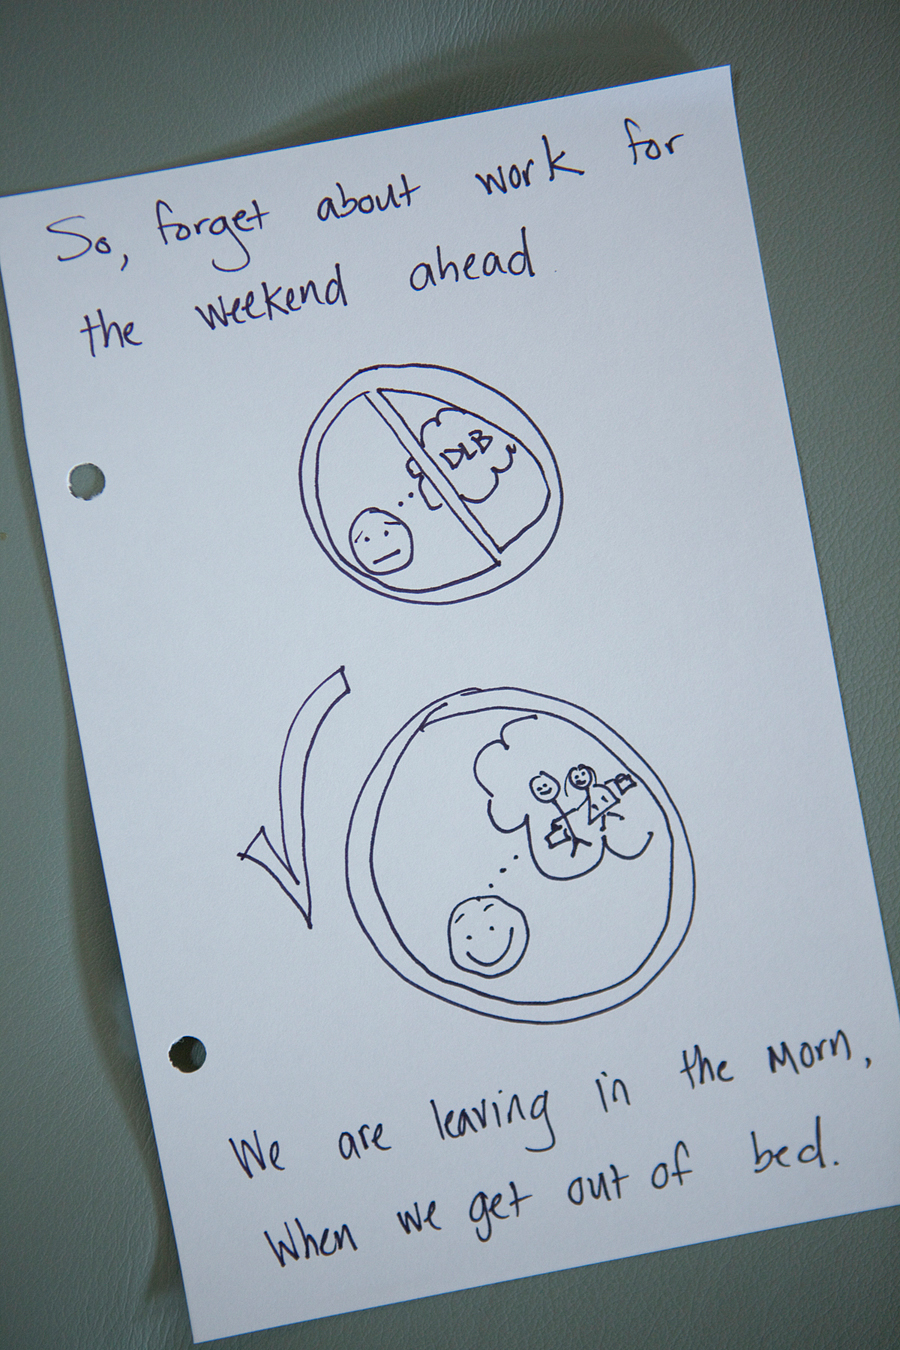 So, forget about work for
the weekend ahead
DLB
We are leaving in the Morn,
When we get out of bed.